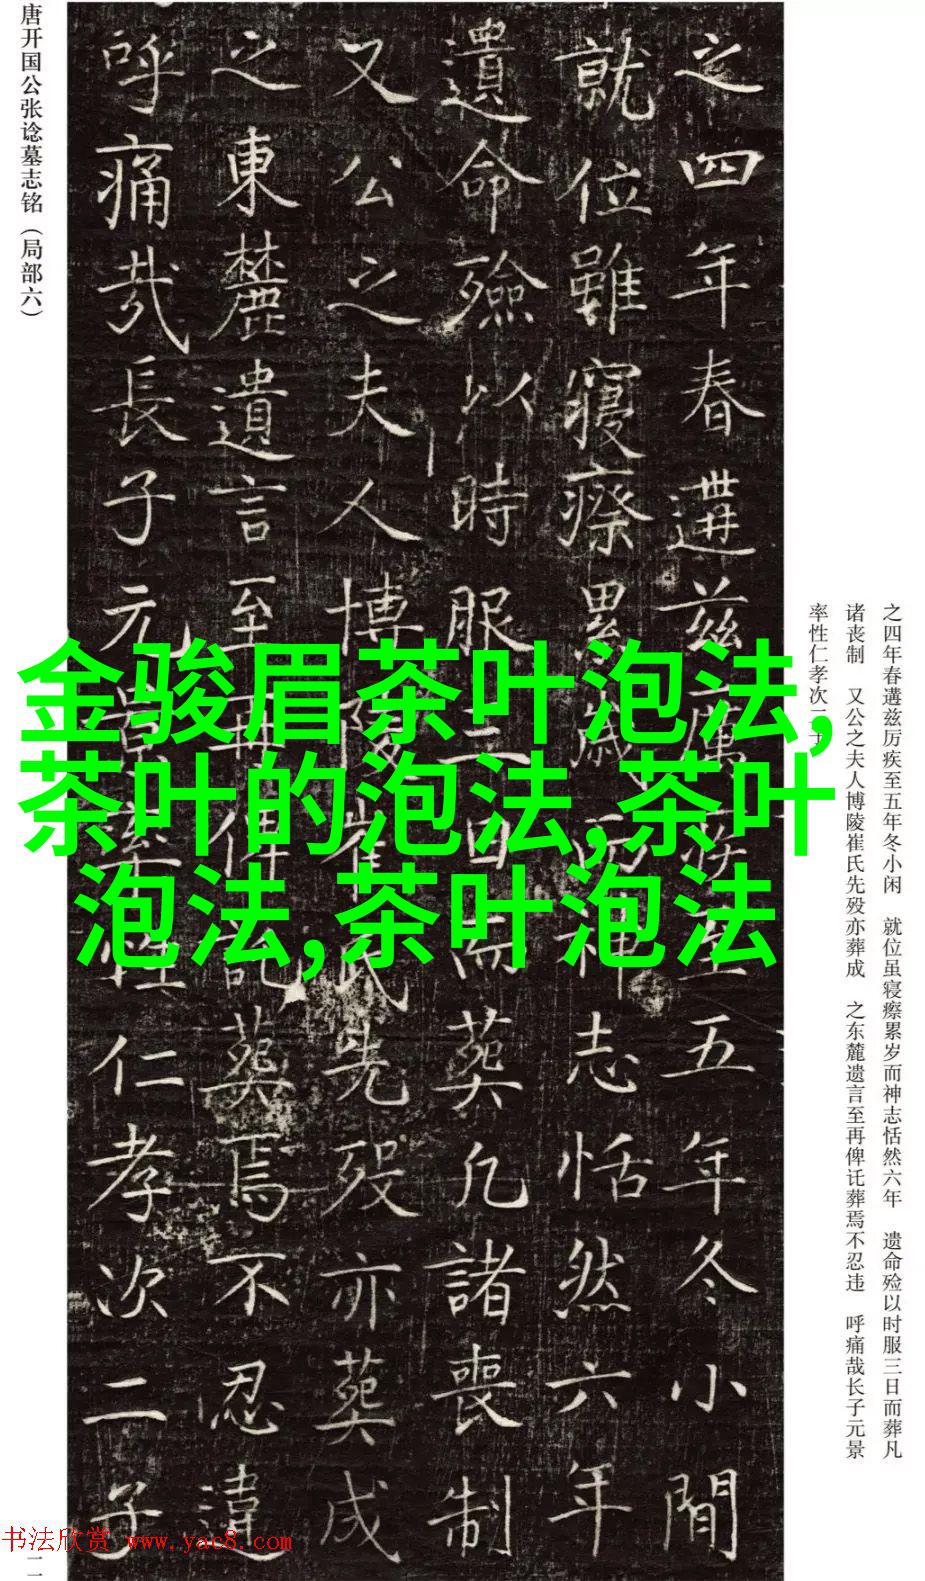 唐开国公张谂墓志铭（局部六）
之四年春遘兹厉疾至五年冬小閒
就位雖寝瘵累歲而神志恬然六年
遺命殮以時服三日而葬凡諸喪制
又公之夫人博陵崔氏先殁亦葬成
之東麓遺言至再俾託葬焉不忍違
呼痛哉長子元景率性仁孝次二子
金骏眉茶叶泡法,
茶叶的泡法,茶叶
泡法,茶叶泡法
之四年春遘兹厉疾至五年冬小闲　就位虽寝瘵累岁而神志恬然六年　遗命殓以时服三日而葬凡
诸丧制　又公之夫人博陵崔氏先殁亦葬成　之东麓遗言至再俾讬葬焉不忍违　呼痛哉长子元景
率性仁孝次二子
书法欣赏 www.yac8.com